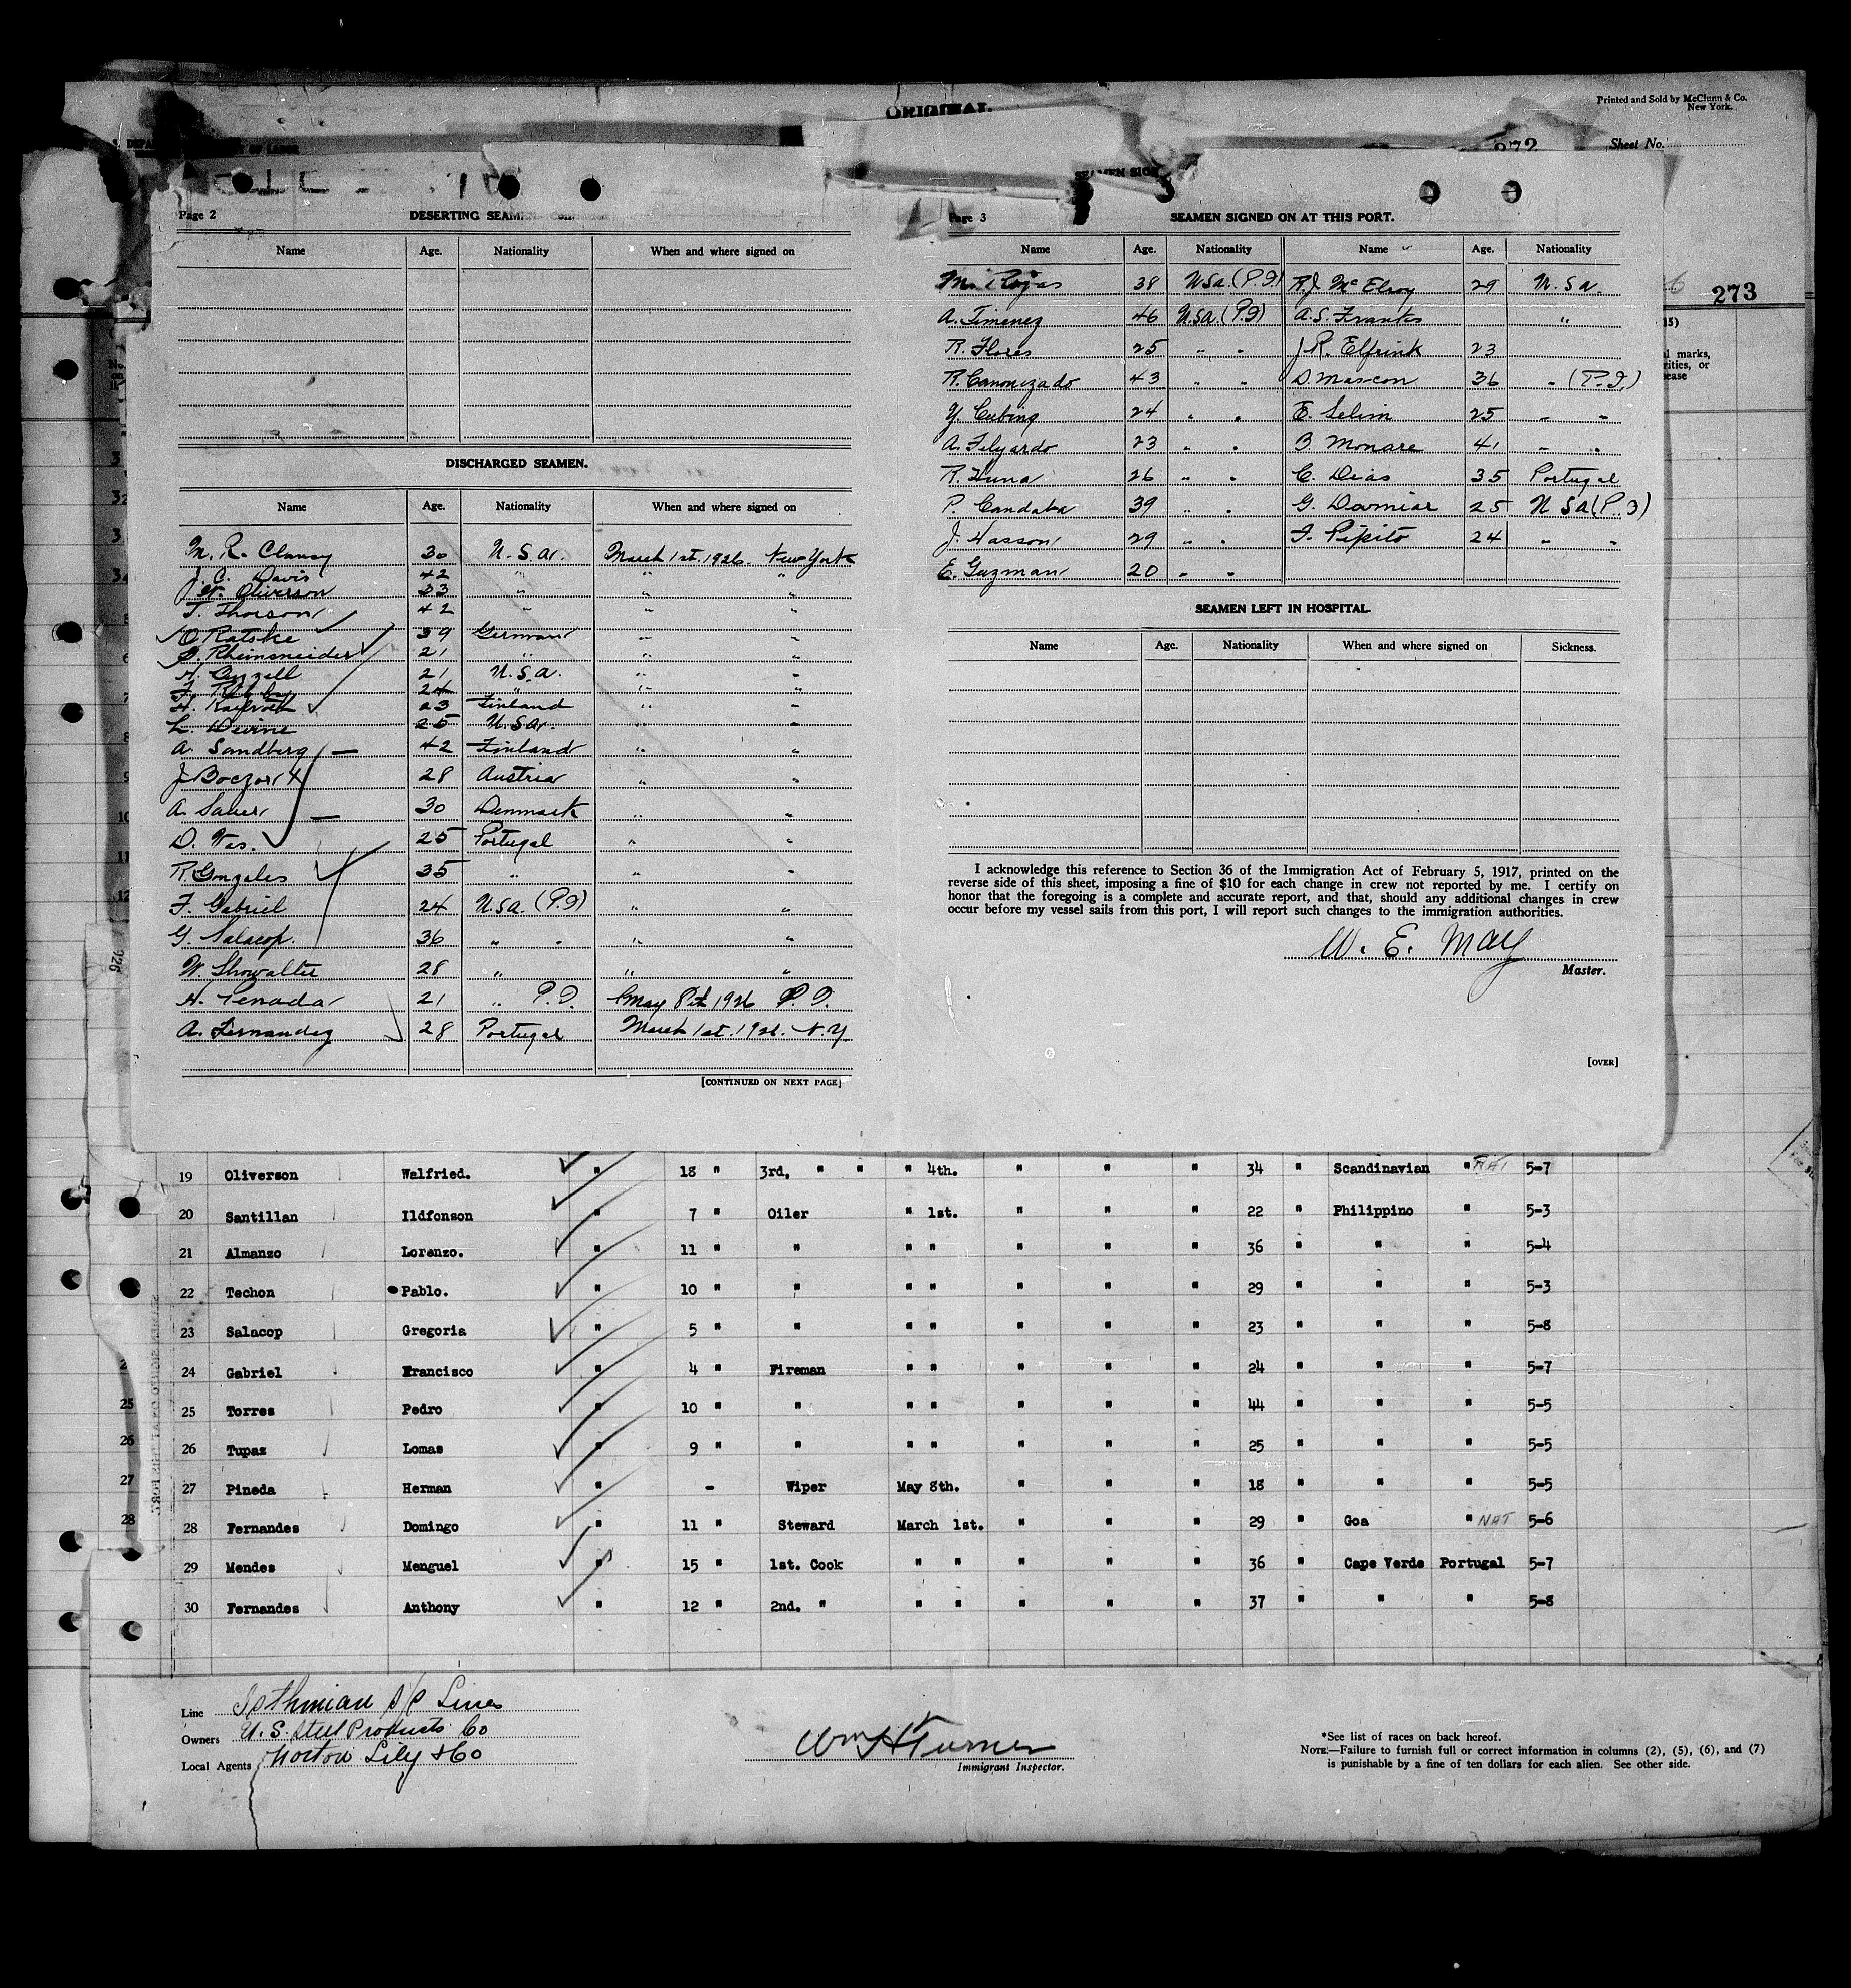 ORIGINAL
Printed and Sold by McClunn & Co.
New York.
272
Sheet No.
273
Page 2
DESERTING SEAM
Name Age. Nationality When and where signed on
DISCHARGED SEAMEN.
Name Age. Nationality When and where signed on
M. R. Clancy 30 U.S.A. March 1st. 1926. New York
J. C. Davis 42 " " "
J. W. Oliverson 33 " " "
T. Thorson 42 " " "
O Ratske 39 German " "
Rheinsneider 21 " " "
21 U.S.A. " "
24 " " "
23 Finland " "
L. Devine 25 U.S.A. "
A. Sandberg 42 Finland " "
J Boczor 28 Austria " "
A. Saner 30 Denmark " "
D. Vas. 25 Portugal " "
R. Gonzales 35 " "
F. Gabriel 24 U.S.A. (P.I) " "
G. Salacop. 36 " " " "
W. Showalter 28 " " "
H. Penada 21 " P.I. May 8th 1926 P.I.
A. Fernandez 28 Portugal March 1st. 1926. N.Y.
[CONTINUED ON NEXT PAGE]
Page 3
SEAMEN SIGNED ON AT THIS PORT.
Name Age. Nationality Name Age. Nationality
M. Rojas 38 U.S.A. (P.I) R.J. McElroy 29 U.S.A.
A. Jimenez 46 U.S.A. (P.I) A.S. Franks "
R. Flores 25 " " J.R. Elfrink 23
R. Canonizado 43 " " D. Mascon 36 " (P.I.)
Y. Cubing 24 " " E. Selim 25 " "
A. Filyardo 23 " " B. Monare 41 " "
R. Huna 26 " " C. Dias 35 Portugal
P. Candaba 39 " " G. Damiar 25 U.S.A. (P.I)
J. Hasson 29 " " F. Pipito 24 " "
E. Guzman 20 " "
SEAMEN LEFT IN HOSPITAL.
Name Age. Nationality When and where signed on Sickness.
I acknowledge this reference to Section 36 of the Immigration Act of February 5, 1917, printed on the
reverse side of this sheet, imposing a fine of $10 for each change in crew not reported by me. I certify on
honor that the foregoing is a complete and accurate report, and that, should any additional changes in crew
occur before my vessel sails from this port, I will report such changes to the immigration authorities.
W. E. May
Master.
[OVER]
19 Oliverson Walfried. " 18 " 3rd. " " " 4th. " " " 34 " Scandinavian " 5-7
20 Santillan Ildfonson " 7 " Oiler " 1st. " " " 22 " Philippino " 5-3
21 Almanzo Lorenzo. " 11 " " " " " " " 36 " " " 5-4
22 Techon Pablo. " 10 " " " " " " " 29 " " " 5-3
23 Salacop Gregoria " 5 " " " " " " " 23 " " " 5-8
24 Gabriel Francisco " 4 " Fireman " " " " " 24 " " " 5-7
25 Torres Pedro " 10 " " " " " " " 44 " " " 5-5
26 Tupaz Lomas " 9 " " " " " " " 25 " " " 5-5
27 Pineda Herman " - Wiper May 8th. " " " 18 " " " 5-5
28 Fernandes Domingo " 11 " Steward March 1st. " " " 29 " Goa " NAT 5-6
29 Mendes Menguel " 15 " 1st. Cook " " " " " 36 " Cape Verde Portugal 5-7
30 Fernandes Anthony " 12 " 2nd. " " " " " " 37 " " " 5-8
Line Isthmian S/S Lines
Owners U. S. Steel Products Co
Local Agents Norton Lily & Co
Wm H Turner
Immigrant Inspector.
*See list of races on back hereof.
NOTE.—Failure to furnish full or correct information in columns (2), (5), (6), and (7)
is punishable by a fine of ten dollars for each alien. See other side.